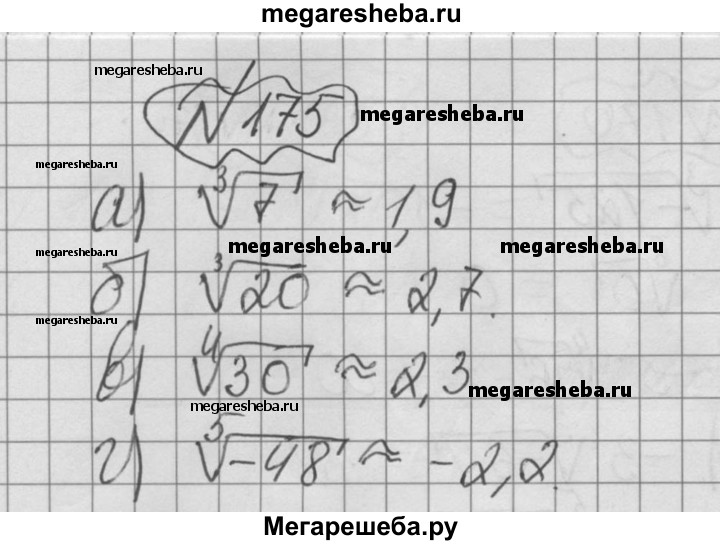 megaresheba.ru
megaresheba.ru
N 175 megaresheba.ru
megaresheba.ru
а) ∛7 ≈ 1,9
megaresheba.ru megaresheba.ru
б) ∛20 ≈ 2,7.
megaresheba.ru
в) ∜30 ≈ 2,3
megaresheba.ru
megaresheba.ru
г) ⁵√-48 ≈ -2,2.
Мегарешеба.ру